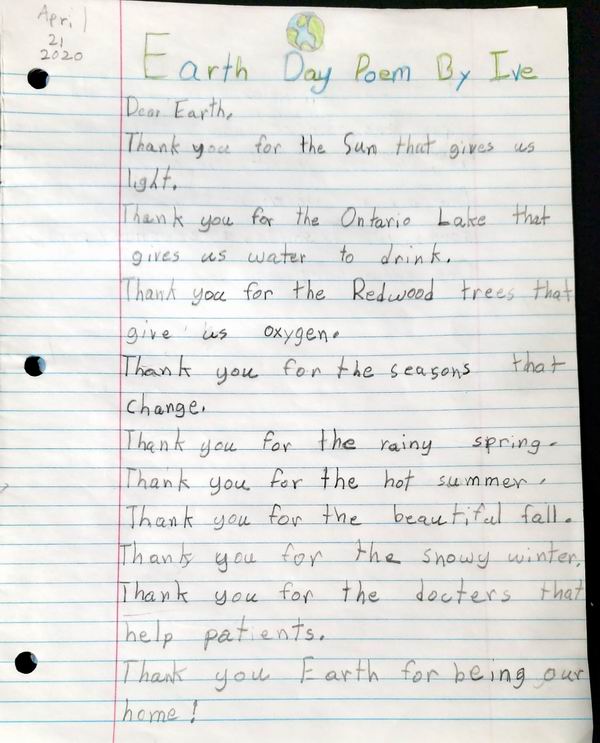 April
21
2020
Earth Day Poem By Ive
Dear Earth,
Thank you for the Sun that gives us
light.
Thank you for the Ontario Lake that
gives us water to drink.
Thank you for the Redwood trees that
give us oxygen.
Thank you for the seasons that
change.
Thank you for the rainy spring.
Thank you for the hot summer.
Thank you for the beautiful fall.
Thank you for the snowy winter.
Thank you for the docters that
help patients.
Thank you Earth for being our
home!